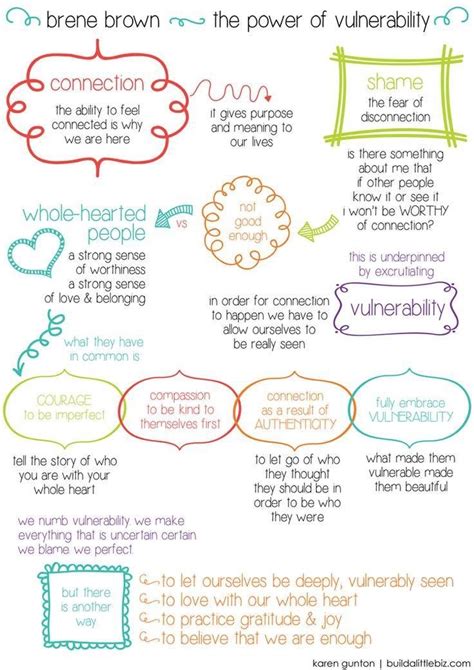 brene brown → the power of vulnerability
connection
the ability to feel
connected is why
we are here
it gives purpose
and meaning to
our lives
shame
the fear of
disconnection
is there something
about me that
if other people
know it or see it
i won't be WORTHY
of connection?
not
good
enough
vs
whole-hearted
people
a strong sense
of worthiness
a strong sense
of love & belonging
this is underpinned
by excrutiating
vulnerability
in order for connection
to happen we have to
allow ourselves to
be really seen
what they have
in common is:
COURAGE
to be imperfect
compassion
to be kind to
themselves first
connection
as a result of
AUTHENTICITY
fully embrace
VULNERABILITY
tell the story of who
you are with your
whole heart
to let go of who
they thought
they should be in
order to be who
they were
what made them
vulnerable made
them beautiful
we numb vulnerability. we make
everything that is uncertain certain.
we blame. we perfect.
but there
is another
way
to let ourselves be deeply, vulnerably seen
to love with our whole heart
to practice gratitude & joy
to believe that we are enough
karen gunton | buildalittlebiz.com